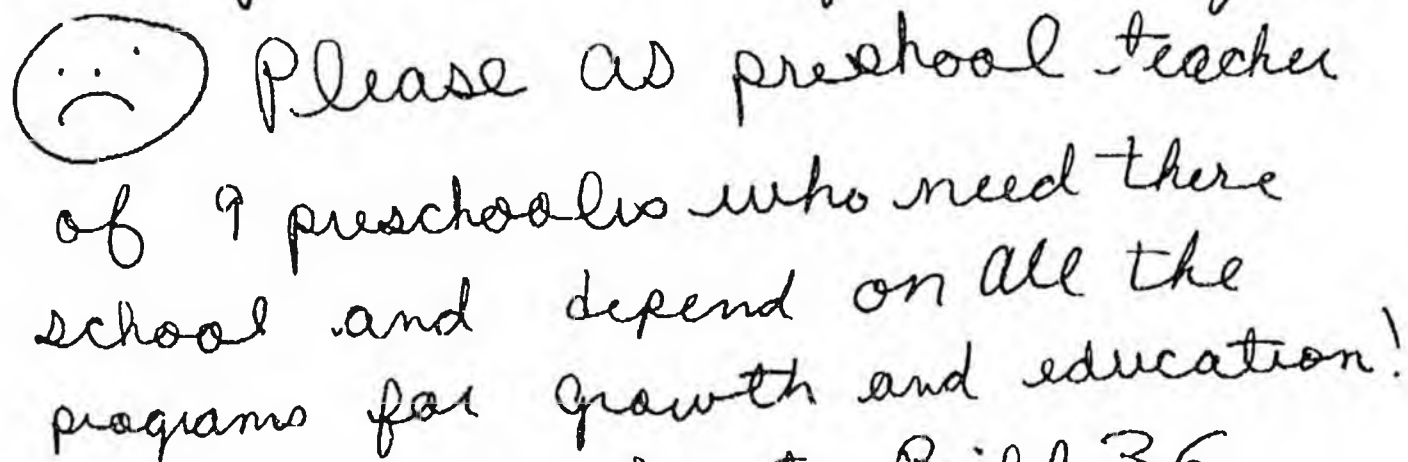 Please as preshool teacher
of 9 preschoolis who need there
school and depend on all the
programs for growth and education!
Bill 36